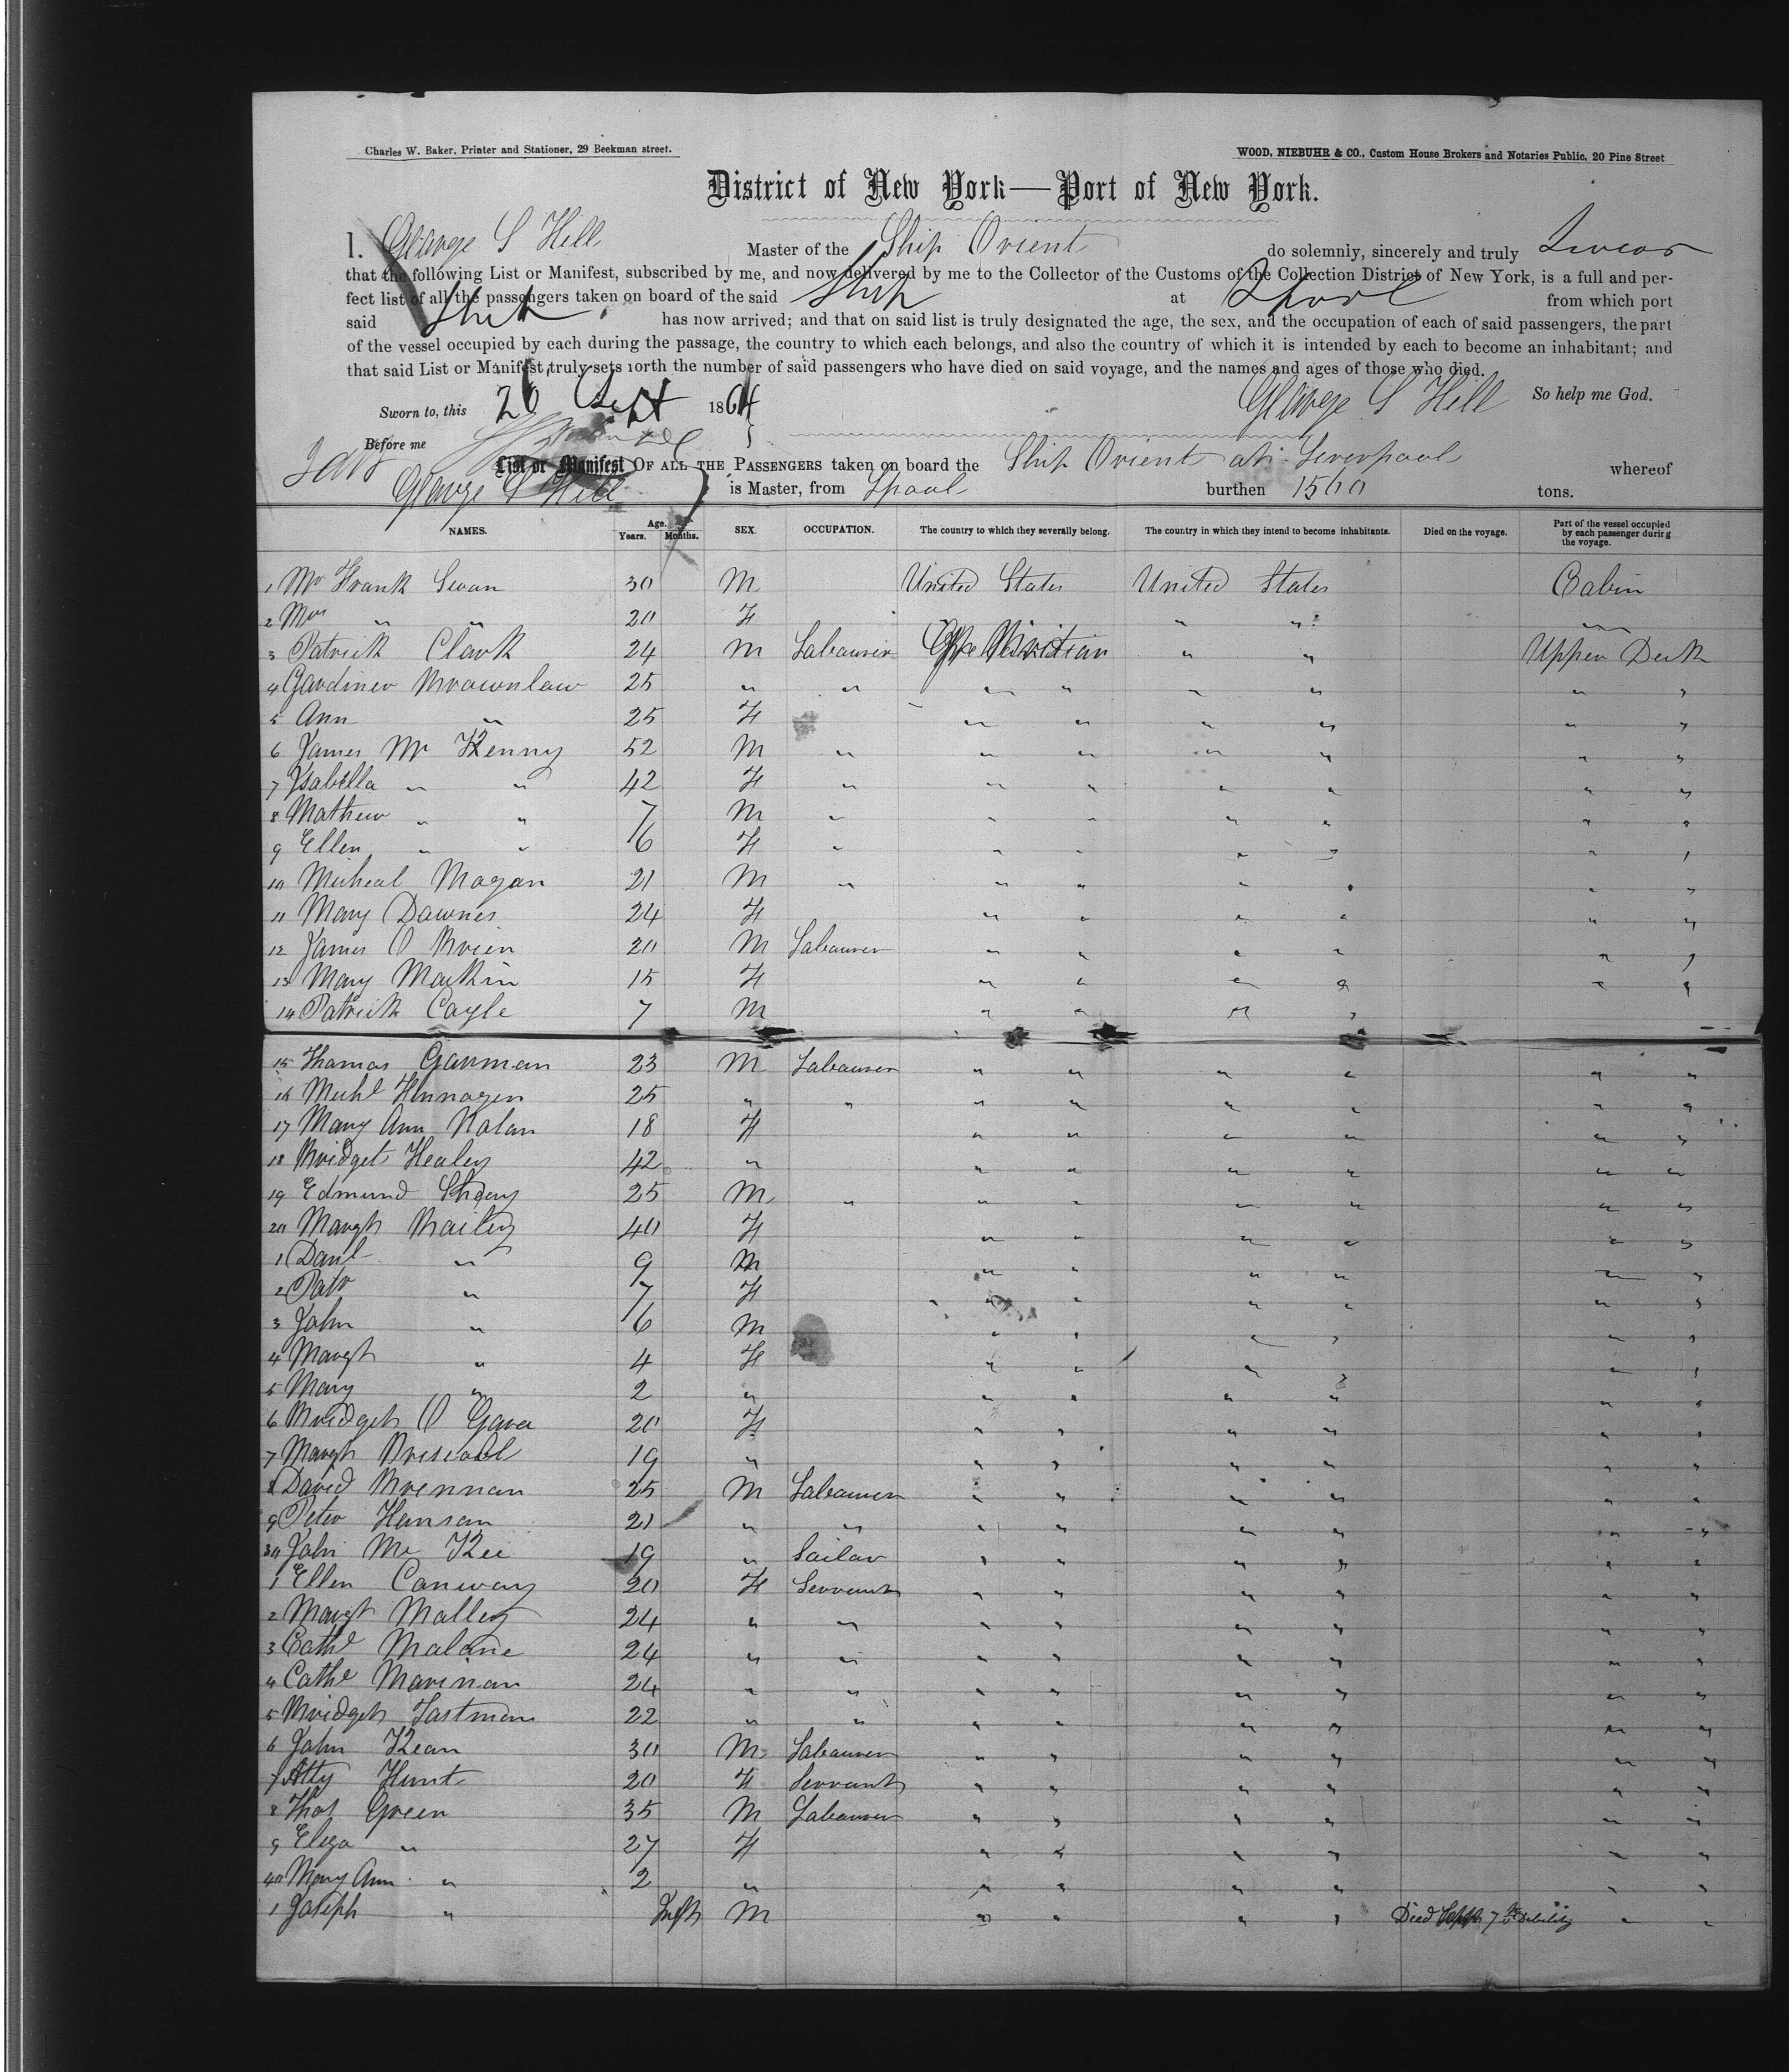 Charles W. Baker, Printer and Stationer, 29 Beekman street.
WOOD, NIEBUHR & CO., Custom House Brokers and Notaries Public, 20 Pine Street
District of New York—Port of New York.
I. George S Hill Master of the Ship Orient do solemnly, sincerely and truly Swear
that the following List or Manifest, subscribed by me, and now delivered by me to the Collector of the Customs of the Collection District of New York, is a full and per-
fect list of all the passengers taken on board of the said Ship at Lpool from which port
said Ship has now arrived; and that on said list is truly designated the age, the sex, and the occupation of each of said passengers, the part
of the vessel occupied by each during the passage, the country to which each belongs, and also the country of which it is intended by each to become an inhabitant; and
that said List or Manifest, truly sets forth the number of said passengers who have died on said voyage, and the names and ages of those who died.
Sworn to, this 26 Sept 1864 George S Hill So help me God.
Before me
List or Manifest OF ALL THE PASSENGERS taken on board the Ship Orient at Liverpool whereof
George S Hill is Master, from Lpool burthen 1560 tons.
NAMES. Age. Years. Months. SEX. OCCUPATION. The country to which they severally belong. The country in which they intend to become inhabitants. Died on the voyage. Part of the vessel occupied by each passenger during the voyage.
1 Mr Frank Swan 30 M United States United States Cabin
2 Mrs " " 20 F " " "
3 Patrick Clark 24 M Labourer " " Upper Deck
4 Gardiner Brownlow 25 " " " " " " " "
5 Ann " 25 F " " " " " "
6 James Mc Kenny 52 M " " " " " " "
7 Isabella " " 42 F " " " " " " "
8 Mathew " " 7 M " " " " " " "
9 Ellen " " 6 F " " " " " " "
10 Micheal Mogan 21 M " " " " " " "
11 Mary Downes 24 F " " " " " "
12 James O Brien 20 M Labourer " " " " " "
13 Mary Mackin 15 F " " " " " "
14 Patrick Coyle 7 M " " " " " "
15 Thomas Gorman 23 M Labourer " " " " " "
16 Michl Hennagen 25 " " " " " " " "
17 Mary Ann Nolan 18 F " " " " " "
18 Bridget Healey 42 " " " " " " "
19 Edmund Sheay 25 M " " " " " " "
20 Margt Bailey 40 F " " " " " "
1 Danl " 9 M " " " " " "
2 Patr " 7 F " " " " " "
3 John " 6 M " " " " " "
4 Margt " 4 F " " " " " "
5 Mary " 2 " " " " " " "
6 Bridget O Gara 20 F " " " " " "
7 Margt Driscoll 19 " " " " " " "
8 David Brennan 25 M Labourer " " " " " "
9 Peter Hanson 21 " " " " " " " "
30 John Mc Kee 19 " Sailor " " " " " "
1 Ellen Conway 20 F Servant " " " " " "
2 Margt Malley 24 " " " " " " " "
3 Cathe Malone 24 " " " " " " " "
4 Cathe Marinan 24 " " " " " " " "
5 Bridget Tastman 22 " " " " " " " "
6 John Kean 30 M Labourer " " " " " "
7 Atty Hunt 20 F Servant " " " " " "
8 Thos Green 35 M Labourer " " " " " "
9 Eliza " 27 F " " " " " "
40 Mary Ann " 2 " " " " " " "
1 Joseph " Inft M " " " " Died Sept 7th Debility " "